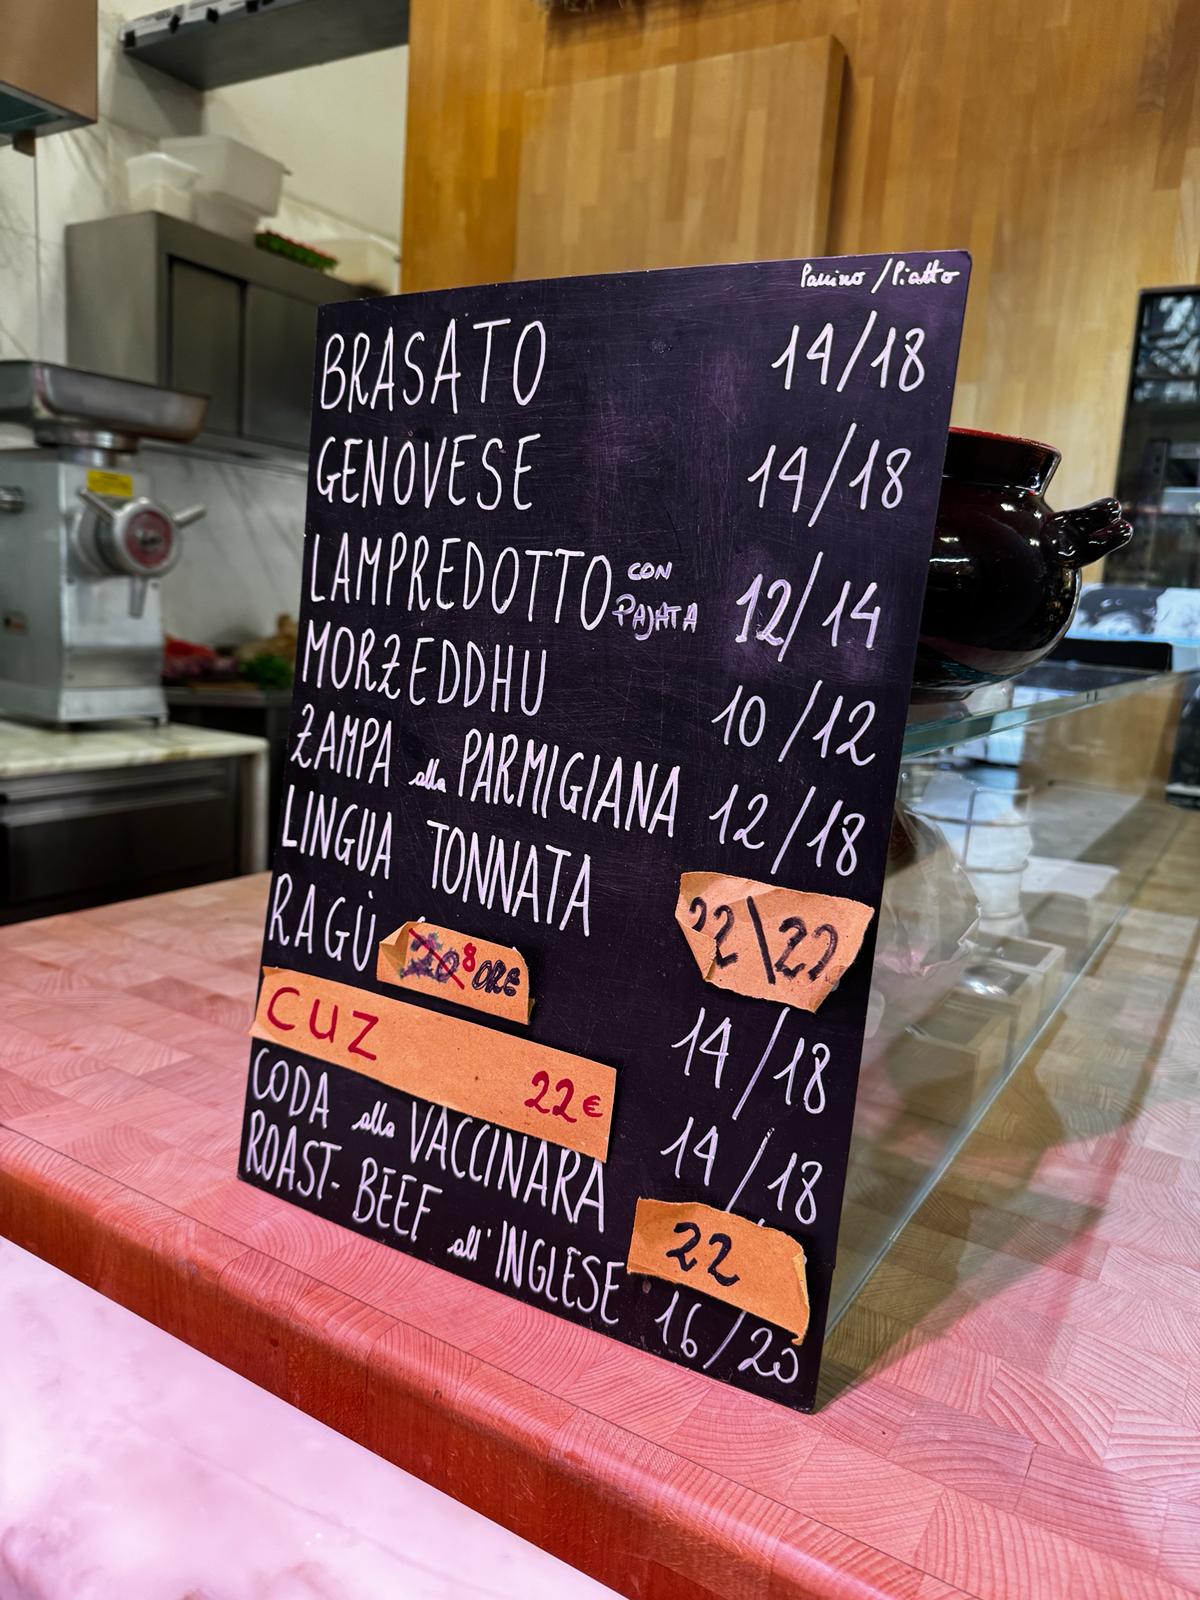 Panino / Piatto
BRASATO 14/18
GENOVESE 14/18
LAMPREDOTTO CON PAJATA 12/14
MORZEDDHU 10/12
ZAMPA alla PARMIGIANA 12/18
LINGUA TONNATA 22\22
RAGÙ 20 8 ORE 14/18
CUZ 22€ 14/18
CODA alla VACCINARA 22
ROAST-BEEF all'INGLESE 16/20